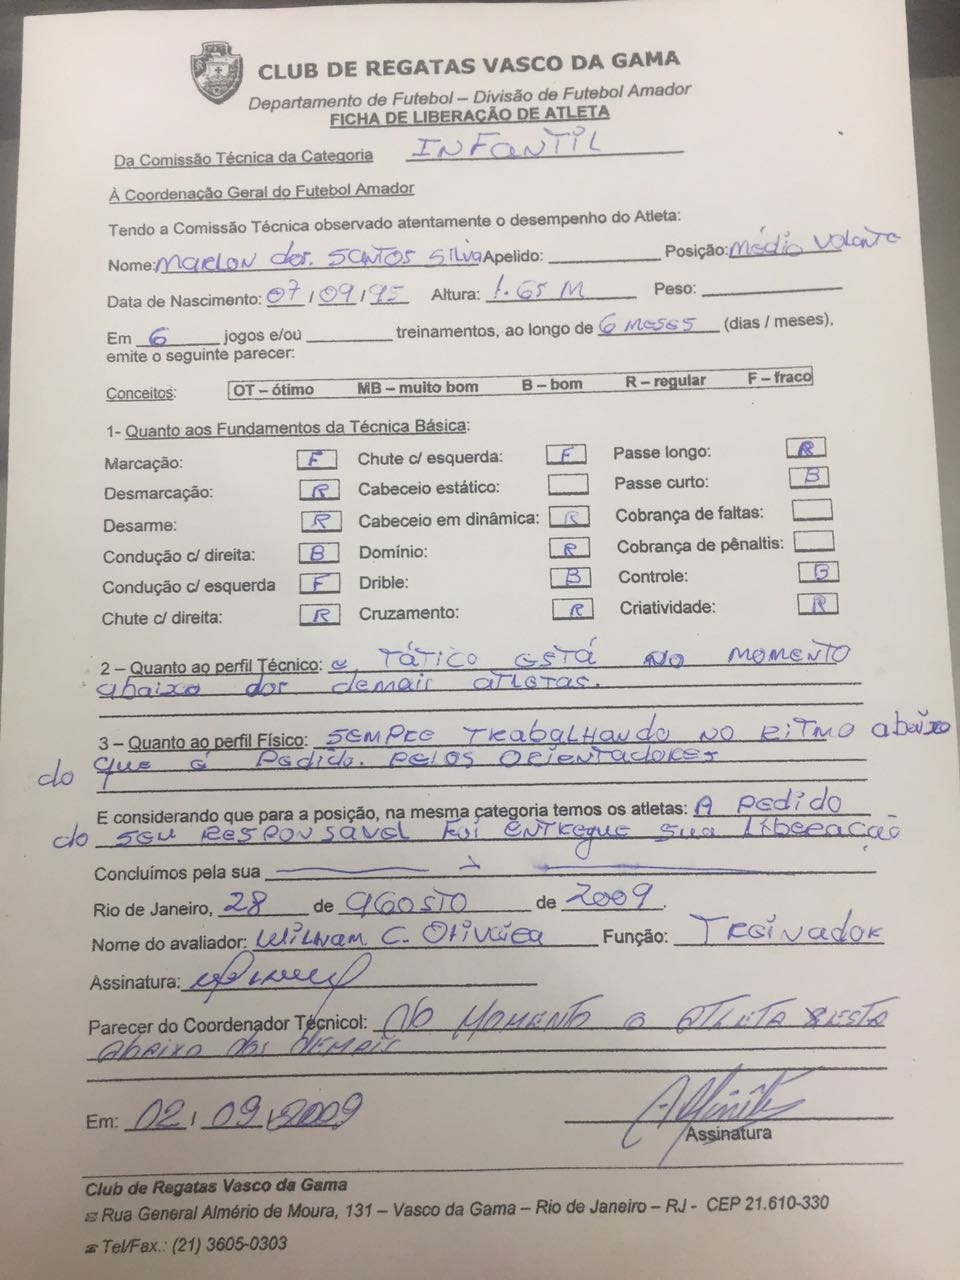 CLUB DE REGATAS VASCO DA GAMA
Departamento de Futebol – Divisão de Futebol Amador
FICHA DE LIBERAÇÃO DE ATLETA
Da Comissão Técnica da Categoria INFANTIL
À Coordenação Geral do Futebol Amador
Tendo a Comissão Técnica observado atentamente o desempenho do Atleta:
Nome: MARLON dos SANTOS SILVA Apelido: Posição: Médio Volante
Data de Nascimento: 07/09/95 Altura: 1.65 M Peso:
Em 6 jogos e/ou treinamentos, ao longo de 6 MESES (dias / meses),
emite o seguinte parecer:
Conceitos: OT – ótimo MB – muito bom B – bom R – regular F – fraco
1- Quanto aos Fundamentos da Técnica Básica:
Marcação: F Chute c/ esquerda: F Passe longo: R
Desmarcação: R Cabeceio estático: Passe curto: B
Desarme: R Cabeceio em dinâmica: R Cobrança de faltas:
Condução c/ direita: B Domínio: R Cobrança de pênaltis:
Condução c/ esquerda F Drible: B Controle: B
Chute c/ direita: R Cruzamento: R Criatividade: R
2 – Quanto ao perfil Técnico: e TÁTICO ESTÁ NO MOMENTO
abaixo dos demais ATLETAS.
3 – Quanto ao perfil Físico: SEMPRE TRABALHANDO NO RITMO abaixo
do que é Pedido. PELOS ORIENTADORES
E considerando que para a posição, na mesma categoria temos os atletas: A pedido
do SEU RESPONSAVEL FOI ENTREGUE sua LIBERAÇÃO
Concluímos pela sua
Rio de Janeiro, 28 de AGOSTO de 2009.
Nome do avaliador: William C. Função: TREINADOR
Assinatura:
Parecer do Coordenador Técnicol: NO MOMENTO O ATLETA ESTA
ABAIXO DOS DEMAIS
Em: 02/09/2009
Assinatura
Club de Regatas Vasco da Gama
Rua General Almério de Moura, 131 – Vasco da Gama – Rio de Janeiro – RJ - CEP 21.610-330
Tel/Fax.: (21) 3605-0303